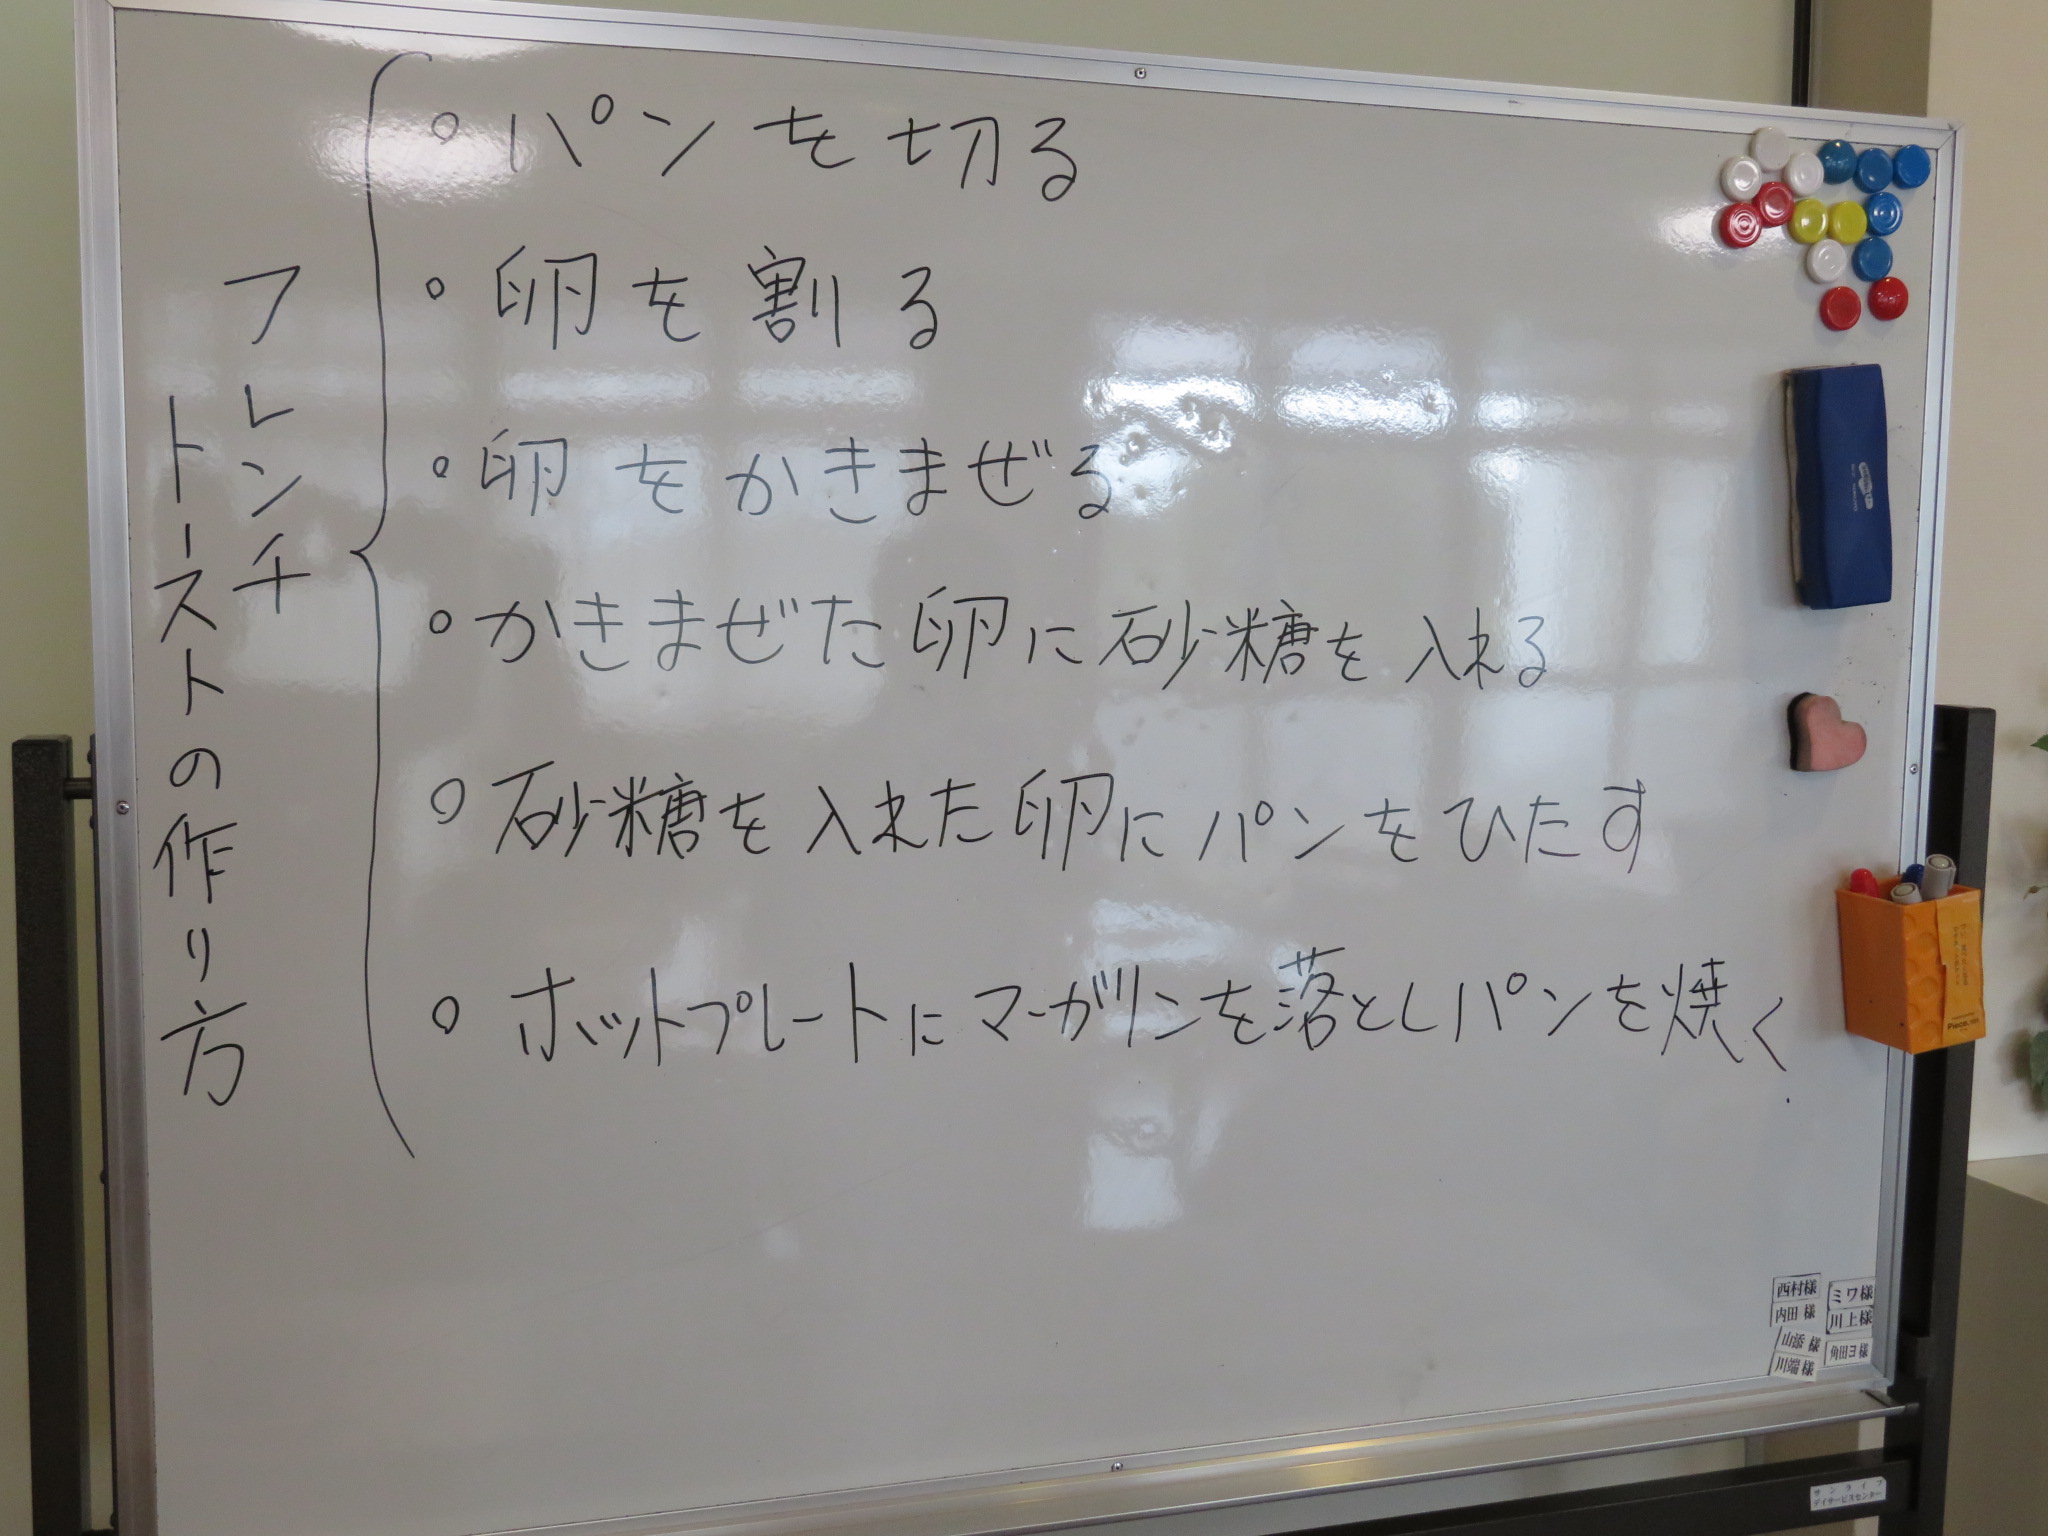 フレンチ
トーストの作り方
。パンを切る
。卵を割る
。卵をかきまぜる
。かきまぜた卵に砂糖を入れる
。砂糖を入れた卵にパンをひたす
。ホットプレートにマーガリンを落としパンを焼く
西村様
ミワ様
内田様
川上様
山添様
角田ヨ様
川端様
サンライフ
デイサービスセンター